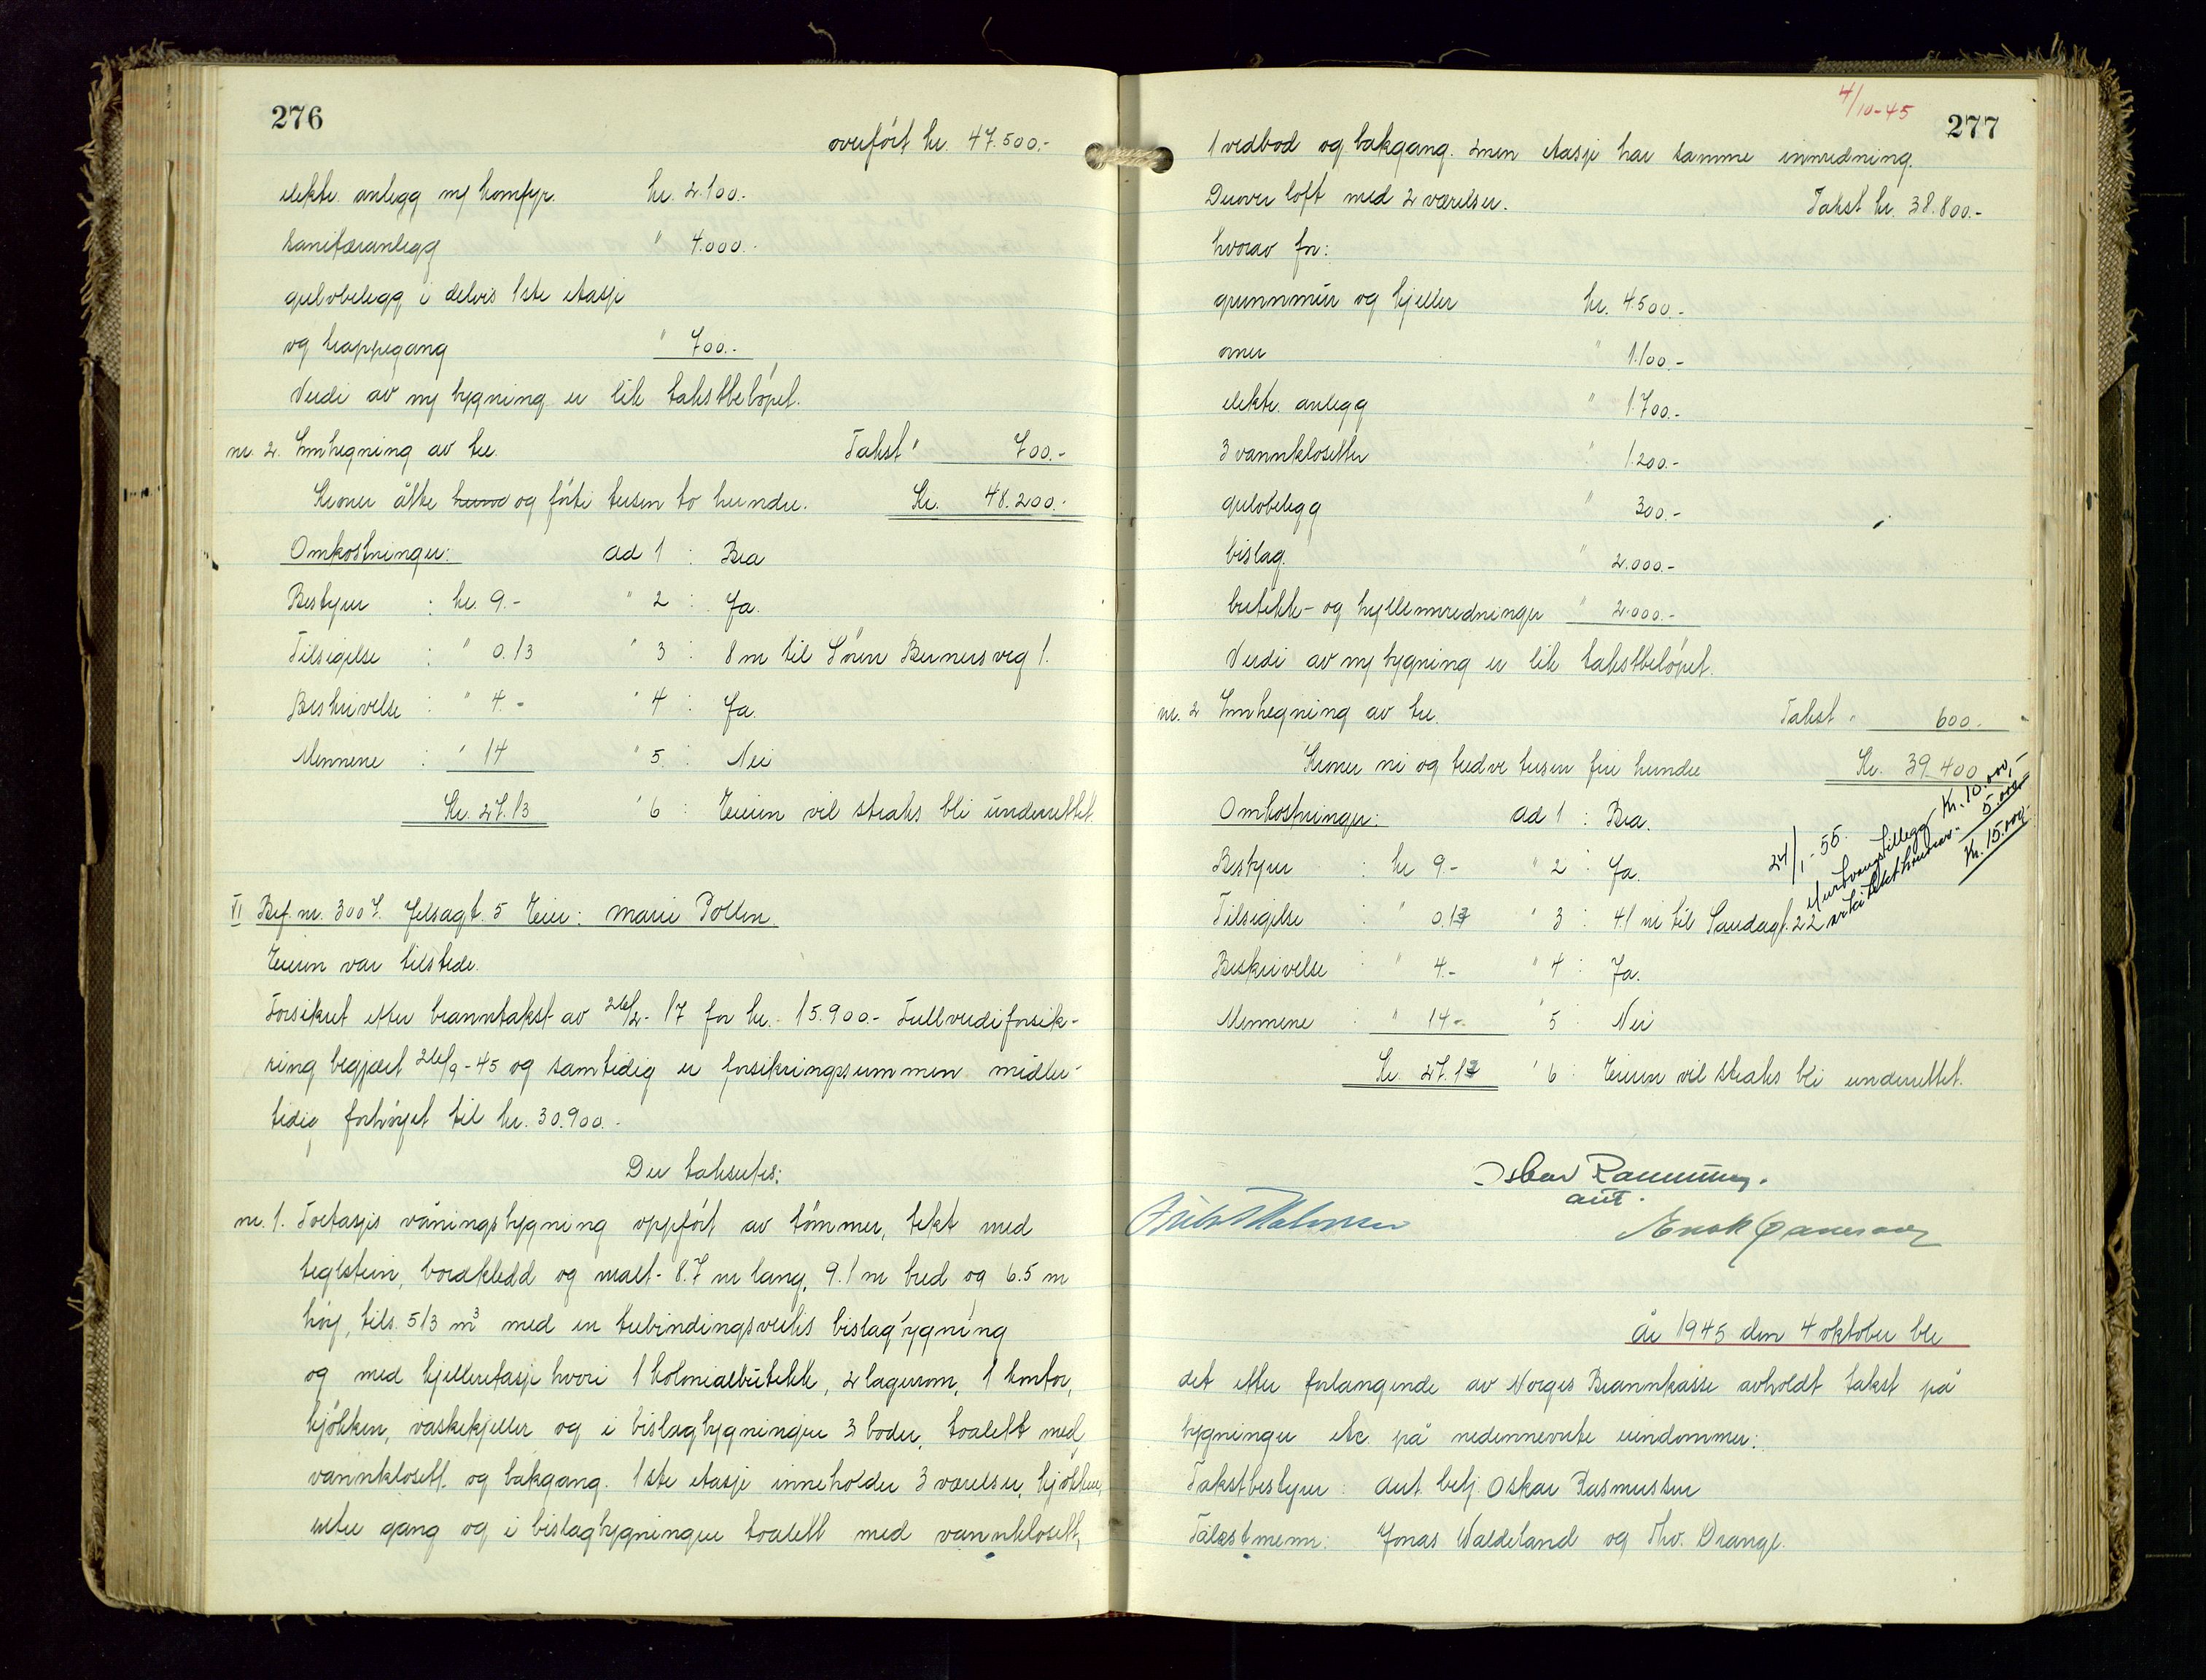 276
overført kr. 47.500.-
elektr. anlegg m/ komfyr. kr. 2.100.-
sanitæranlegg " 4.000.-
gulvbelegg i delvis 1ste etasje
og trappegang " 700.-
Verdi av ny bygning er lik takstbeløpet.
nr. 2. Innhegning av tre. Takst " 700.-
Kroner åtte hund og førti tusen to hundre. Kr. 48.200.-
Omkostninger: ad 1 : Bra
Bestyrer : kr. 9.- " 2 : Ja.
Tilsigelse : " 0.13 " 3 : 8 m til Sören Berners veg 1.
Beskrivelse : " 4.- " 4 : Ja.
Mennene : " 14 " 5 : Nei
Kr. 27.13 " 6 : Eieren vil straks bli underrettet.
VI Bef. nr. 3007. Jelsagt. 5 Eier: Marie Pollen.
Eieren var tilstede.
Forsikret etter branntakst av 26/2- 17 for kr. 15.900.- Fullverdiforsik-
ring begjært 26/9-45 og samtidig er forsikringssummen midler-
tidig forhøyet til kr. 30.900.-
Der takseres:
nr. 1. Toetasjes våningsbygning oppført av tømmer, tekt med
teglstein, bordkledd og malt- 8.7 m lang, 9.1 m bred og 6.5 m
høy, tils. 513 m³ med en trebindingsverks bislagbygning
og med kjelleretasje hvori 1 kolonialbutikk, 2 lagerrom, 1 kontor,
kjøkken, vaskekjeller og i bislagbygningen 3 boder, toalett med
vannklosett og bakgang. 1ste etasje inneholder 3 værelser, kjøkken,
entre gang og i bislagbygningen toalett med vannklosett,
4/10-45
277
1 vedbod og bakgang. 2nen etasje har samme innredning.
Derover loft med 2 værelser. Takst kr. 38.800.-
hvorav for:
grunnmur og kjeller kr. 4.500.-
ovner " 1.100.-
elektr. anlegg " 1.700.-
3 vannklosetter " 1.200.-
gulvbelegg " 300.-
bislag. " 2.000.-
butikk- og hylleinnredninger " 2.000.-
Verdi av ny bygning er lik takstbeløpet.
nr. 2 Innhegning av tre. Takst " 600.-
Kroner ni og tredve tusen fire hundre Kr. 39.400
24/1-55.
murtvangstillegg Kr. 10.000,-
arkitekthonorar- 5.000.-
Kr. 15.000,-
Omkostninger: ad 1 : Bra.
Bestyrer : kr 9.- " 2 : Ja.
Tilsigelse : " 0.13 " 3 : 41 m til Sandagt. 22
Beskrivelse : " 4.- " 4 : Ja.
Mennene : " 14.- " 5 : Nei
Kr 27.13 " 6 : Eieren vil straks bli underrettet.
Oskar Rasmussen.
aut.
År 1945 den 4 oktober ble
det etter forlangende av Norges Brannkasse avholdt takst på
bygninger etc. på nedennevnte eiendommer:
Takstbestyrer : aut. betj. Oskar Rasmussen
Takstmenn: Jonas Waldeland og Thv. Orange.